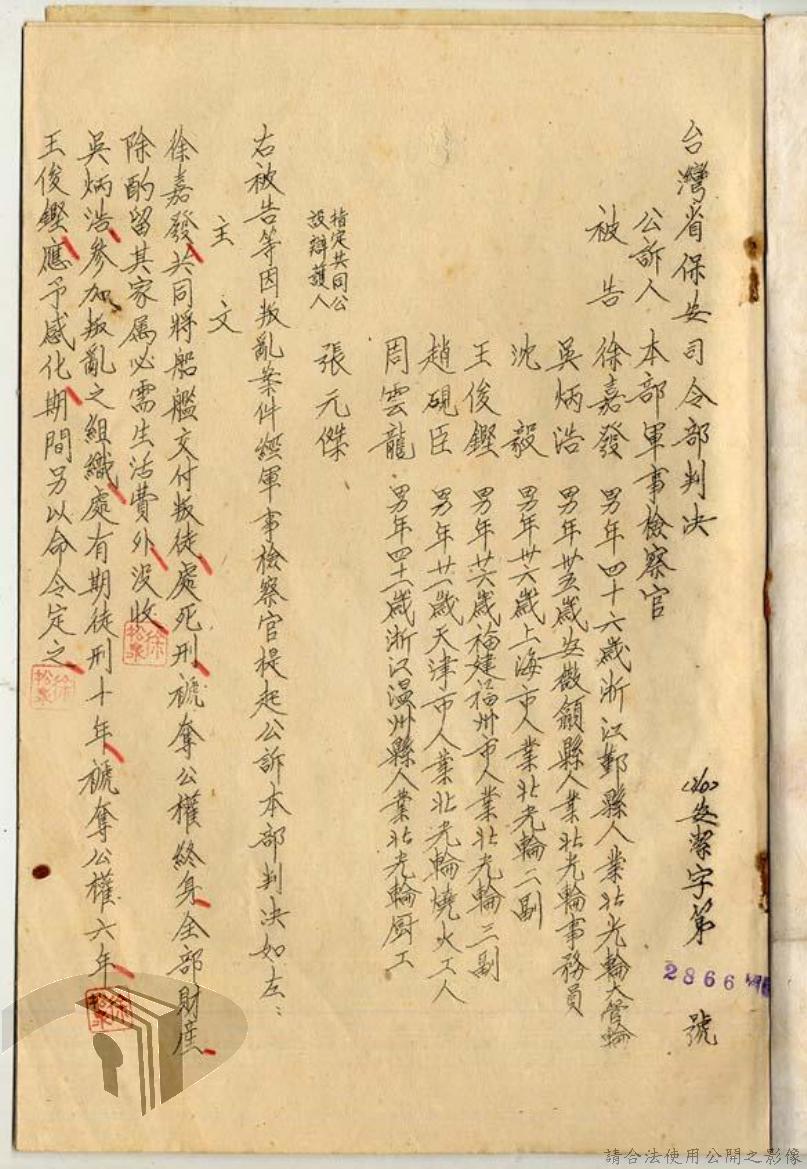 台灣省保安司令部判決
安潔字第2866號
公訴人 本部軍事檢察官
被告 徐嘉發 男年四十六歲浙江鄞縣人業北光輪大管輪
吳炳浩 男年卅五歲安徽額縣人業北光輪事務員
沈毅 男年卅六歲上海市人業北光輪二副
王俊鏗 男年廿六歲福建福州市人業北光輪三副
趙硯臣 男年廿一歲天津市人業北光輪燒火工人
周雲龍 男年四十一歲浙江溫州縣人業北光輪厨工
指定共同公設辯護人 張元傑
右被告等因叛亂案件經軍事檢察官提起公訴本部判決如左:
主文
徐嘉發共同將船艦交付叛徒處死刑褫奪公權終身全部財產
除酌留其家属必需生活費外没收
吳炳浩參加叛亂之組織處有期徒刑十年褫奪公權六年
王俊鏗應予感化期間另以命令定之
徐松泉
徐松泉
徐松泉
請合法使用公開之影像